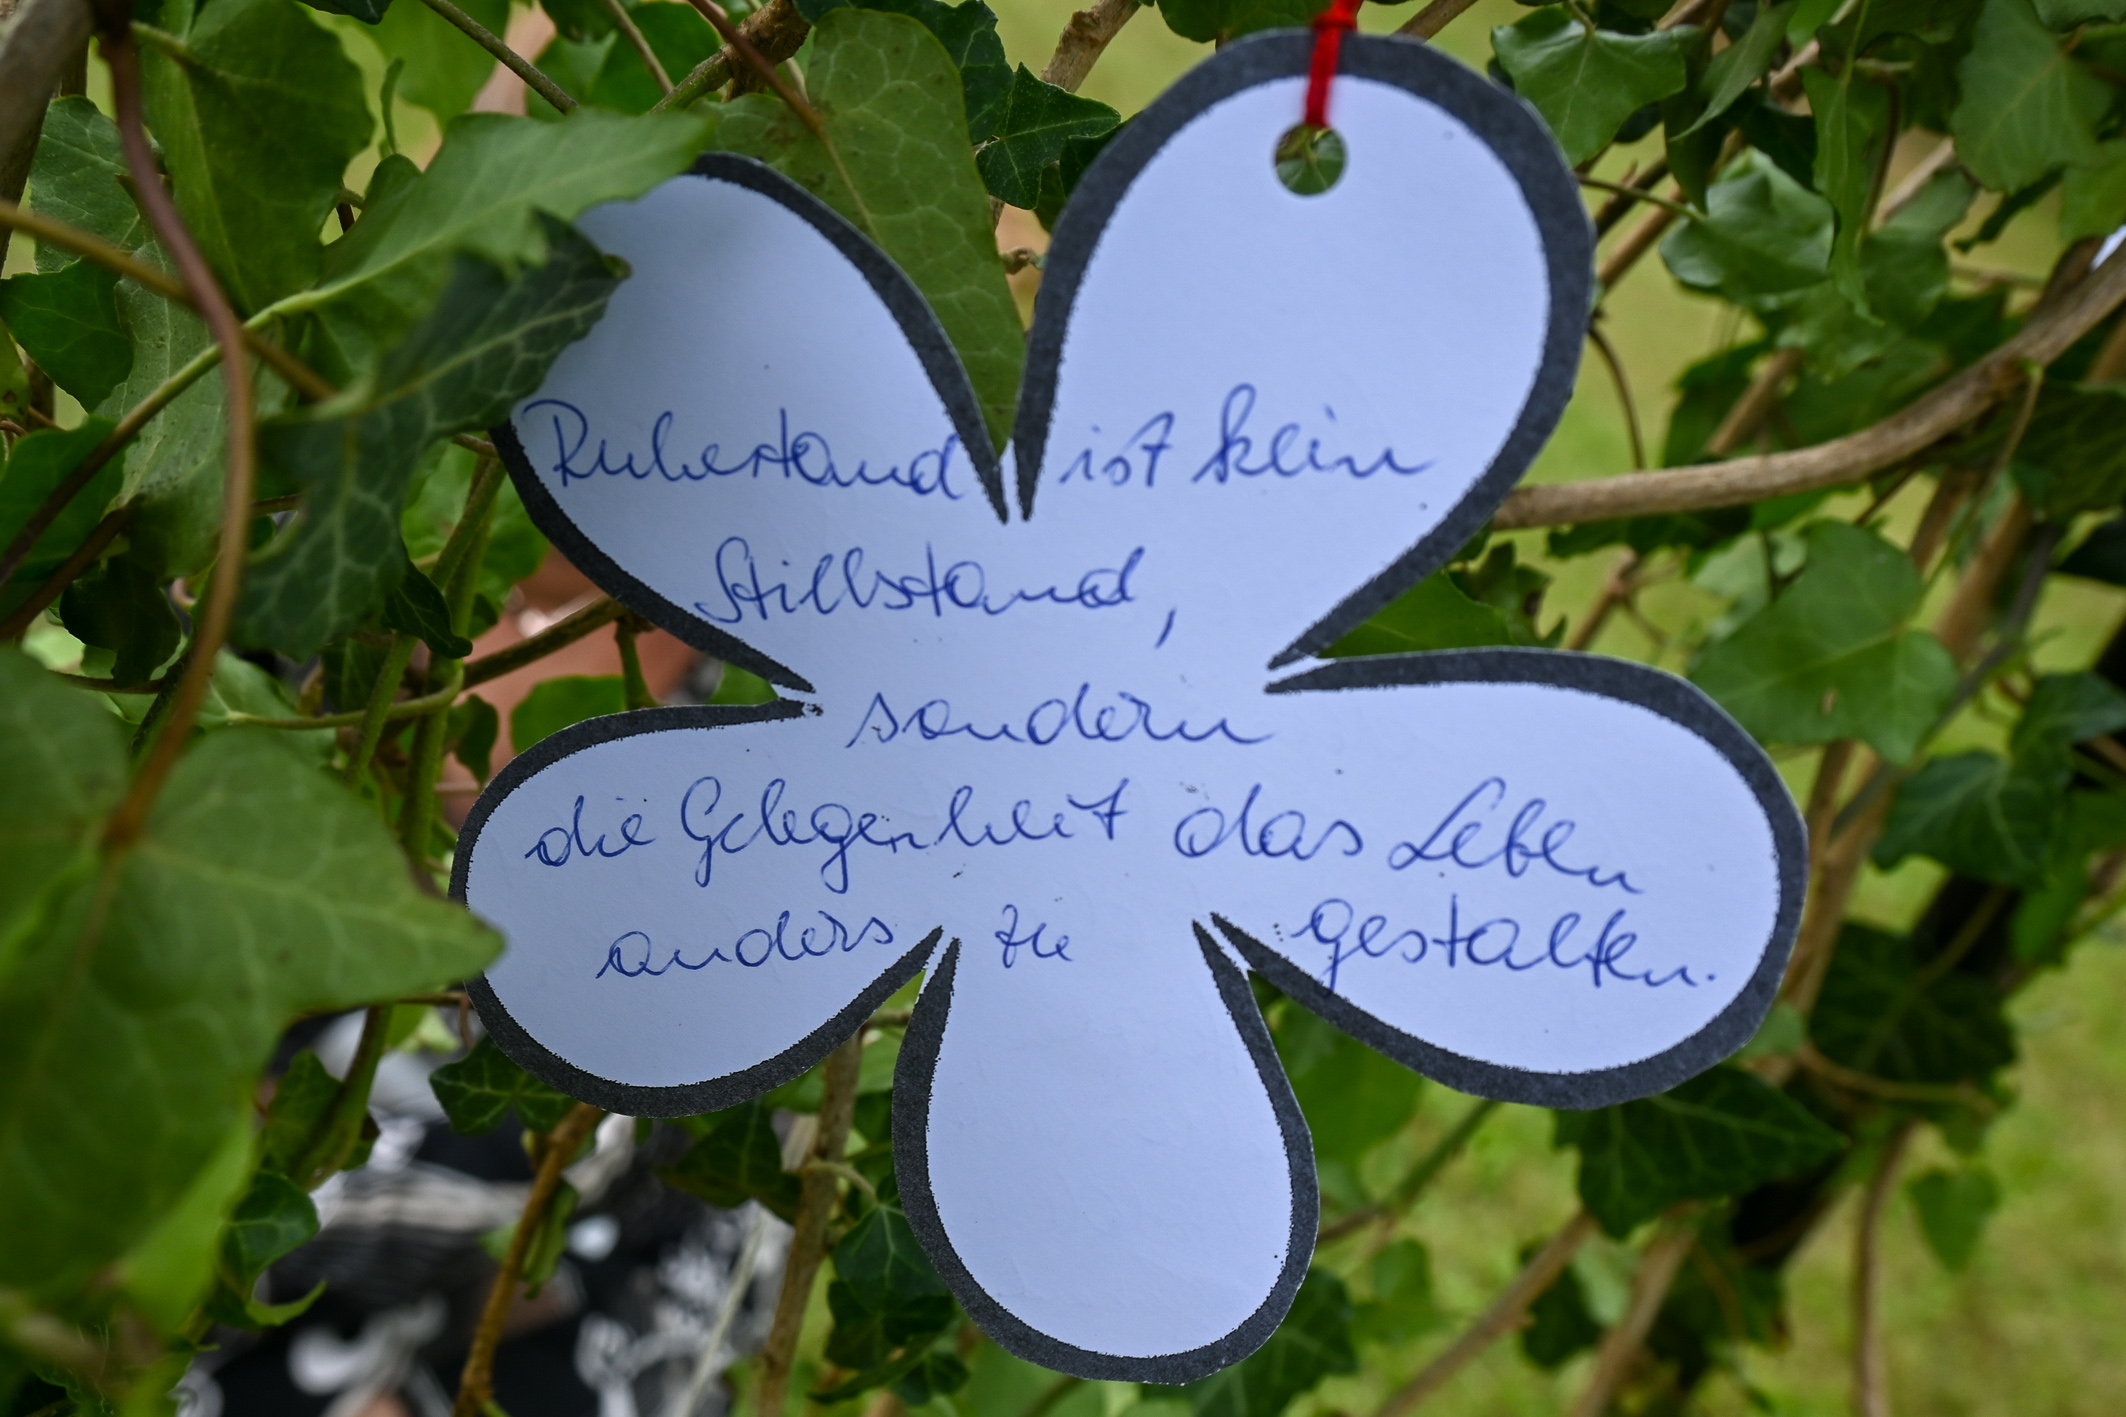 Ruhestand ist kein
Stillstand,
sondern
die Gelegenheit das Leben
anders zu gestalten.